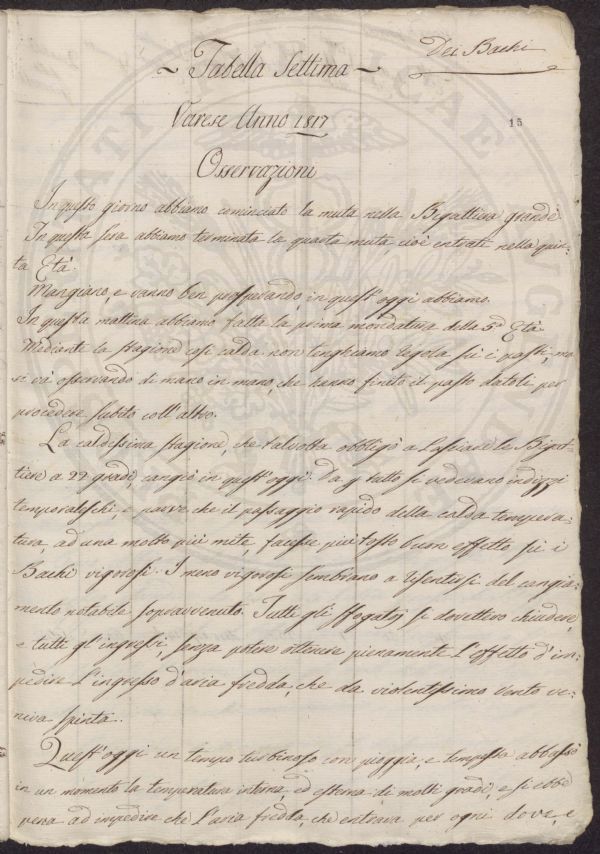 Dei Bachi
~ Tabella Settima ~
Varese Anno 1817
15
Osservazioni
In questo giorno abbiamo cominciato la muta nella Bigattiera grande
In questa sera abbiamo terminata la quarta muta, cioè entrati nella quin-
ta Età.
Mangiano, e vanno ben prosperando, in quest'oggi abbiamo.
In questa mattina abbiamo fatta la prima mondatura della 5ª Età
Mediante la stagione così calda non tenghiamo regola su i pasti, ma
si và osservando di mano in mano, che hanno finito il pasto datoli per
procedere subito coll'altro.
La caldissima stagione, che talvolta obbligò a lasciare le Bigat-
tiere a 22 gradi, cangiò in quest'oggi. Da tutto si vedevano indizzj
temporaleschi, e parve che il passaggio rapido della calda tempera-
tura, ad una molto più mite, facesse piu tosto buon effetto su i
Bachi vigorosi. I meno vigorosi sembrano a risentirsi del cangia-
mento notabile sopravvenuto. Tutti gli sfogatoj si dovettero chiudere,
e tutti gl'ingressi, senza potere ottenere pienamente l'effetto d'im-
pedire l'ingresso d'aria fredda, che da violentissimo vento ve-
niva spinta.
Quest'oggi un tempo turbinoso con pioggia, e tempesta abbassò
in un momento la temperatura interna, ed esterna di molti gradi, e si ebbe
pena ad impedire che l'aria fredda, che entrava per ogni dove, e